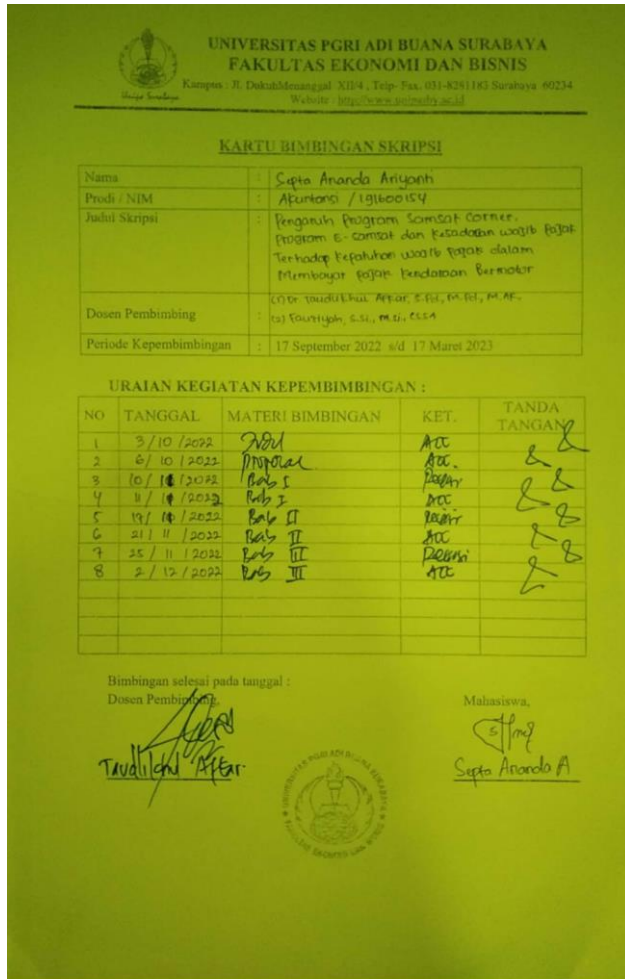 UNIVERSITAS PGRI ADI BUANA SURABAYA
FAKULTAS EKONOMI DAN BISNIS
Kampus : Jl. DukuhMenanggal XII/4 , Telp- Fax. 031-8281183 Surabaya 60234
Website : http://www.unipasby.ac.id
Unipa Surabaya
KARTU BIMBINGAN SKRIPSI
Nama : Septa Ananda Ariyanti
Prodi / NIM : Akuntansi / 191600154
Judul Skripsi : Pengaruh Program Samsat Corner,
Program E-samsat dan Kesadaran wajib pajak
Terhadap Kepatuhan wajib pajak dalam
Membayar pajak Kendaraan Bermotor
(1) Dr Taudlikhul Afkar, S.Pd., M.Pd., M.Ak.
Dosen Pembimbing : (2) Fauziyah, S.Si., M.Si., CSSA
Periode Kepembimbingan : 17 September 2022 s/d 17 Maret 2023
URAIAN KEGIATAN KEPEMBIMBINGAN :
NO TANGGAL MATERI BIMBINGAN KET. TANDA TANGAN
1 3/10/2022 Judul ACC
2 6/10/2022 Proposal ACC.
3 10/ /2022 Bab I
4 11/ /2022 Bab I ACC
5 19/ /2022 Bab II
6 21/11/2022 Bab II ACC
7 25/11/2022 Bab III Revisi
8 2/12/2022 Bab III ACC
Bimbingan selesai pada tanggal :
Dosen Pembimbing, Mahasiswa,
Taudlikhul Afkar. Septa Ananda A
UNIVERSITAS PGRI ADI BUANA SURABAYA
FAKULTAS EKONOMI DAN BISNIS